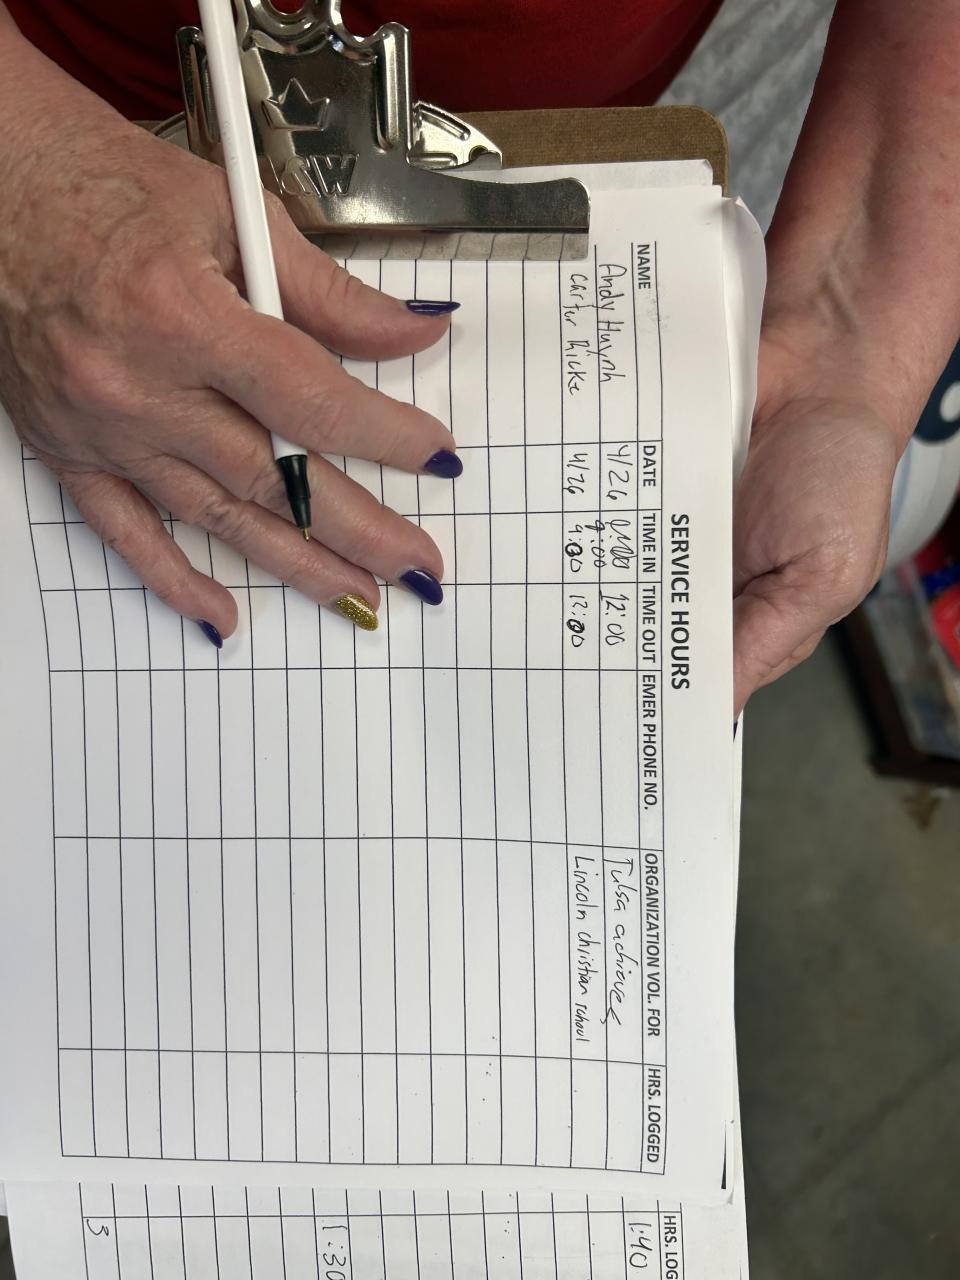 SERVICE HOURS
NAME DATE TIME IN TIME OUT EMER PHONE NO. ORGANIZATION VOL. FOR HRS. LOGGED
Andy Huynh 4/26 9:00 12:00 Tulsa achieves
Carter Ricke 4/26 9:00 12:00 Lincoln christian school
HRS. LOG
1:40
1:30
3